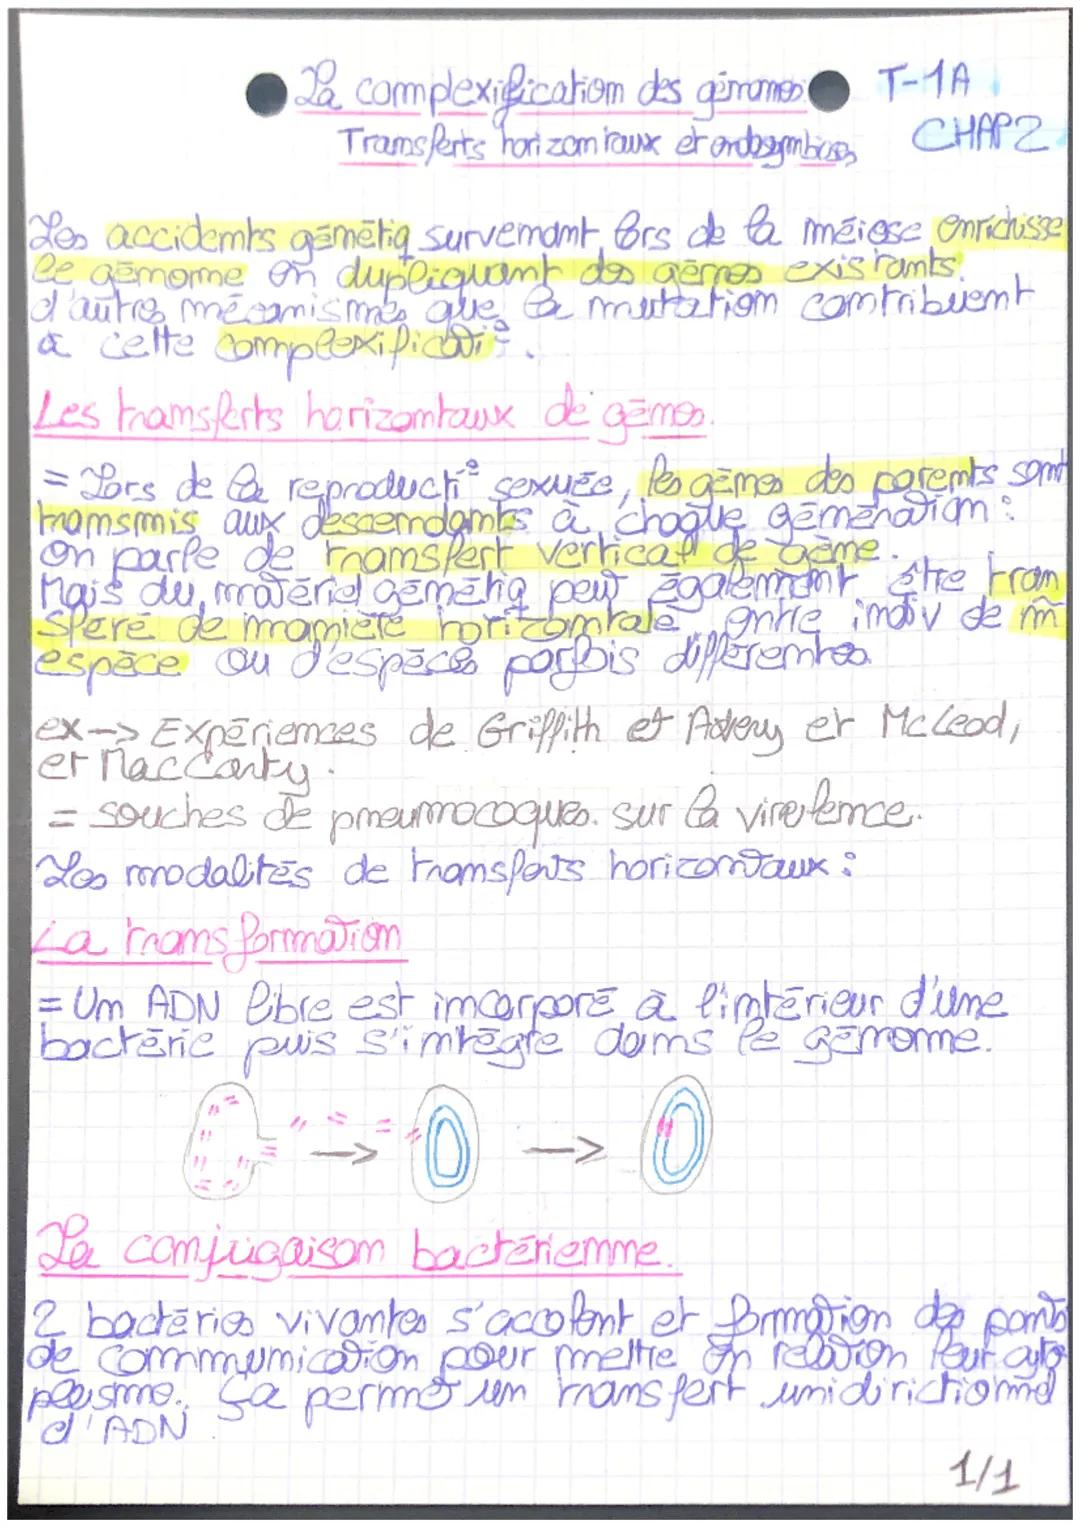 La complexification des génomes T-1A
Transferts horizontaux et endosymbioses CHAP2
Les accidents génétiq survenant lors de la méiose enrichisse
le génome en dupliquant des gènes existants.
d'autres mécanismes que la mutation contribuent
à cette complexificati°.
Les transferts horizontaux de gènes.
= Lors de la reproducti° sexuée, les gènes des parents sont
transmis aux descendants à chaque génération :
on parle de transfert vertical de gène.
Mais du matériel génétiq peut également être tran
sféré de manière horizontale entre indiv de m̂
espèce ou d'espèces parfois différentes.
ex --> Expériences de Griffith et Avery et McLeod,
et MacCarty.
= souches de pneumocoques. sur la virulence.
Les modalités de transferts horizontaux :
La transformation
= Un ADN libre est incorporé à l'intérieur d'une
bactérie puis s'intègre dans le génome.
La conjugaison bactérienne.
2 bactéries vivantes s'accolent et formation des ponts
de communication pour mettre en relation leur cyto
plasme. Ça permet un transfert unidirictionnel
d'ADN
1/1